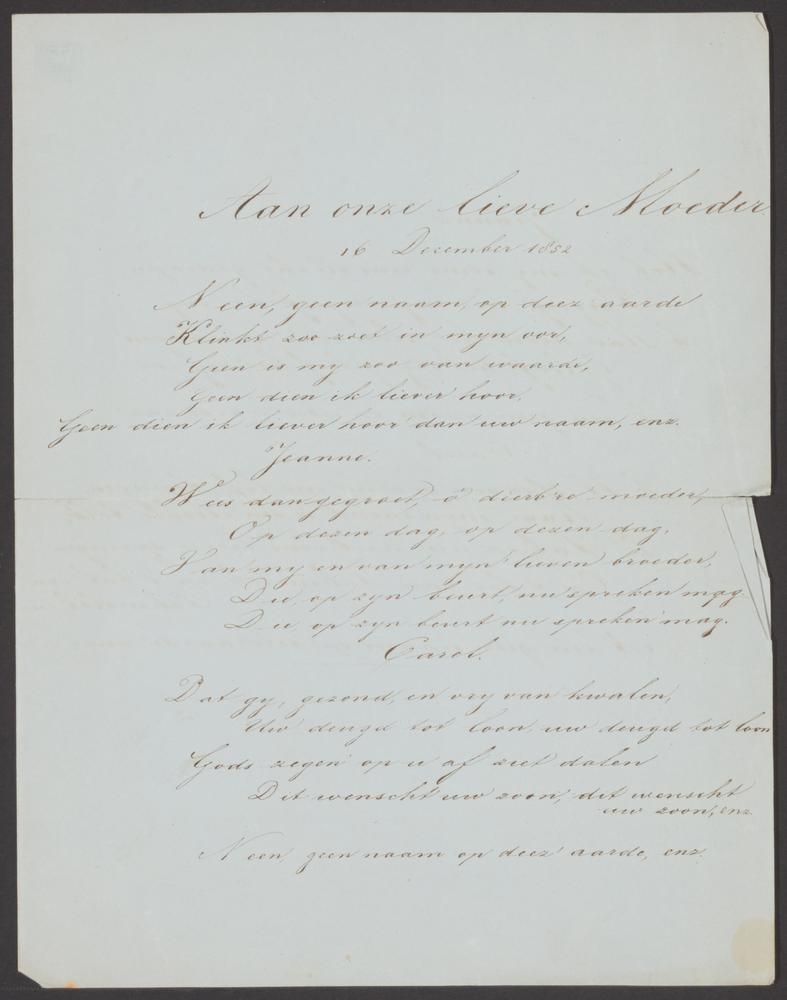 Aan onze lieve Moeder.
16 December 1852
Neen, geen naam, op deez aarde
Klinkt zoo zoet in myn oor,
Geen is my zoo van waarde,
Geen dien ik liever hoor.
Geen dien ik liever hoor dan uw naam, enz.
Jeanne.
Wees dan gegroet, ô dierb're moeder,
Op dezen dag, op dezen dag,
Van my en van myn' lieven broeder,
Die, op zyn beurt, nu spreken mag
Die, op zyn beurt nu spreken mag.
Carel.
Dat gy, gezond, en vry van kwalen,
Uw deugd tot loon, uw deugd tot loon
Gods zegen op u af ziet dalen
Dit wenscht uw zoon, dit wenscht
uw zoon, enz.
Neen, geen naam op deez' aarde, enz.